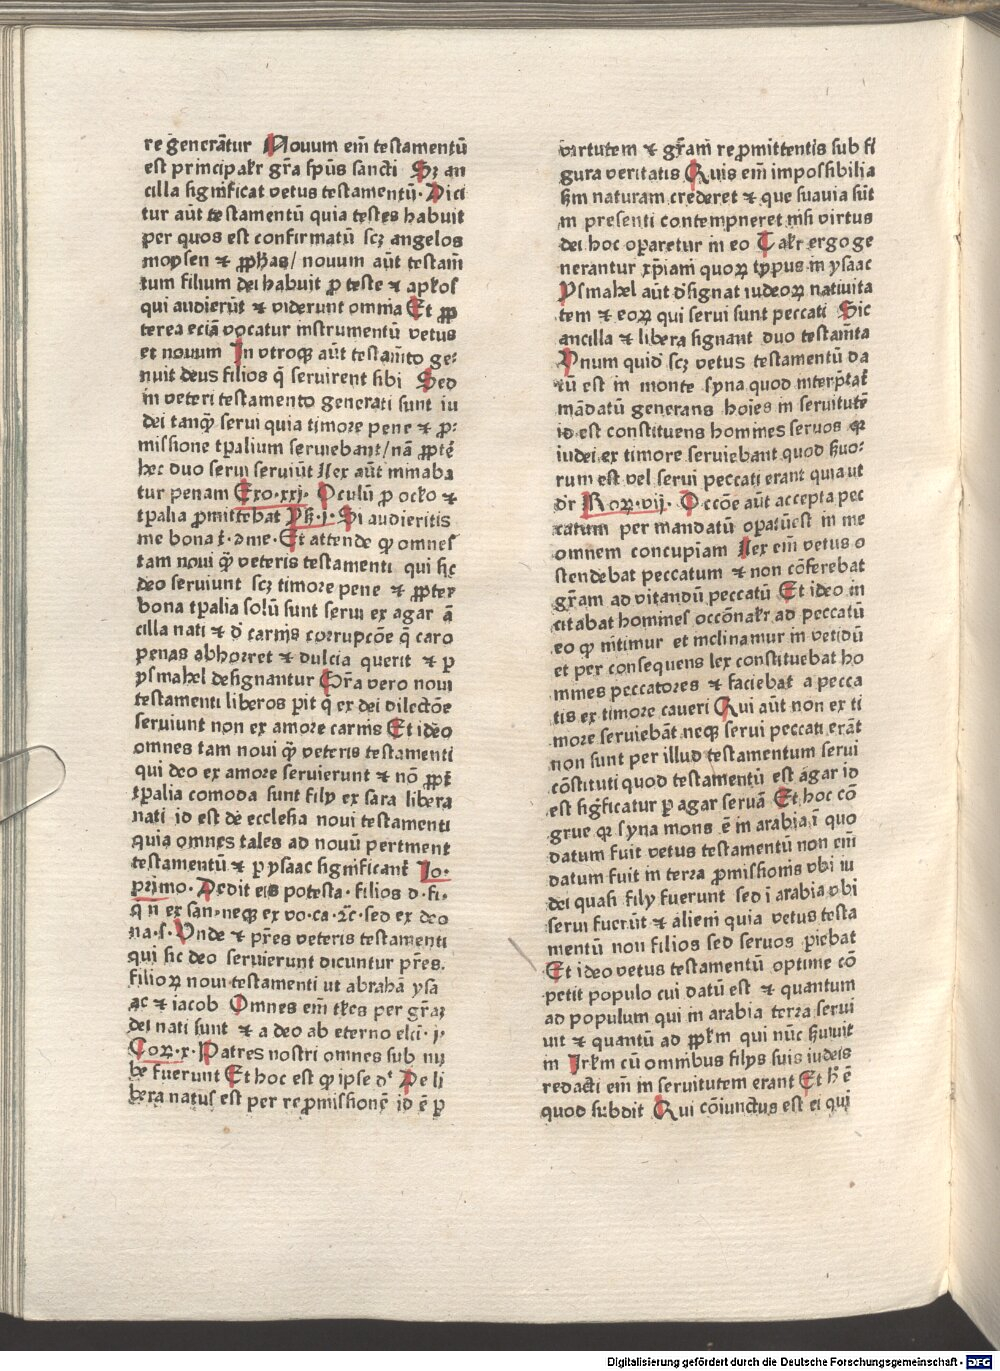 re generātur Nouum em̄ testamentū
est principalr̄ gr̄a sp̄us sancti Sꝫ an
cilla significat vetus testamentū. Dici
tur aūt testamentū quia testes habuit
per quos est confirmatū scꝫ angelos
moysen ⁊ ꝓph̄as/ nouum aūt testam̄
tum filium dei habuit ꝑ teste ⁊ apl̄os
qui audierūt ⁊ viderunt omnia Et ꝓp
terea eciā vocatur instrumentū vetus
et nouum In vtroqꝫ aūt testam̄to ge⸗
nuit deus filios q̄ seruirent sibi Sed
in veteri testamento generati sunt iu
dei tanqͣ serui quia timore pene ⁊ ꝓ⸗
missione tꝑalium seruiebant/nā ꝓpt̄
hec duo serui seruiūt Lex aūt minaba
tur penam Exo.xxj. Oculū ꝓ oclo ⁊
tꝑalia ꝓmittebat Ps̄.j. Si audieritis
me bona t̄.ↄme. Et attende ꝙ omnes
tam noui qͣ veteris testamenti qui sic
deo seruiunt scꝫ timore pene ⁊ ꝓpter
bona tꝑalia solū sunt serui ex agar ā
cilla nati ⁊ d̄ carnis corrupcōe q̄ caro
penas abhorret ⁊ dulcia querit ⁊ ꝑ
ysmahel designantur Gr̄a vero noui
testamenti liberos ꝑit q̄ ex dei dilectōe
seruiunt non ex amore carnis Et idēo
omnes tam noui qͣ veteris testamenti
qui deo ex amore seruierunt ⁊ nō ꝓpt̄
tꝑalia comoda sunt fily ex sara libera
nati id est de ecclesia noui testamenti
quia omnes tales ad nouū pertinent
testamentū ⁊ ꝑ ysaac significant̄ Io.
primo. Dedit eis potesta. filios d. fi.
q̄ n̄ ex san.neqꝫ ex vo.ca.⁊c̄.sed ex deo
na.s. Vnde ⁊ pr̄es veteris testamenti
qui sic deo seruierunt dicuntur pr̄es.
filioꝝ noui testamenti ut abrahā ysa
ac ⁊ iacob Omnes em̄ tl̄es per gr̄aꝫ
dei nati sunt ⁊ a deo ab eterno elci. j.
Coꝝ.x. Patres nostri omnes sub nu
be fuerunt Et hoc est ꝙ ipse dᵗ De li
bera natus est per re ꝓmissionē id ē ꝑ
virtutem ⁊ gr̄am re ꝓmittentis sub fi
gura veritatis Quis em̄ impossibilia
scd̄m naturam crederet ⁊ que suauia sūt
in presenti contempneret nisi virtus
dei hoc oꝑaretur in eo Talr̄ ergo ge
nerantur xp̄iani quoꝝ typus in ysaac
Ysmahel aūt d̄signat iudeoꝝ natiuita
tem ⁊ eoꝝ qui serui sunt peccati Sic
ancilla ⁊ libera signant duo testam̄ta
Vnum quid̄ scꝫ vetus testamentū da
tū est in monte syna quod interp̄tat̄
mādatū generans hoīes in seruitutē
id est constituens homines seruos qꝛ
iudei ex timore seruiebant quod suo⸗
rum est vel serui peccati erant quia ut
dr̄ Roꝝ.vij. Occōe aūt accepta pec
catum per mandatū oꝑatū est in me
omnem concupīam Lex em̄ vetus o
stendebat peccatum ⁊ non cōferebat
gr̄am ad vitandū peccatū Et ideo in
citabat homines occōnalr̄ ad peccatū
eo ꝙ nitimur et inclinamur in vetidū
et per consequens lex constituebat ho
mines peccatores ⁊ faciebat a pecca
tis ex timore caueri Qui aūt non ex ti
more seruiebāt neqꝫ serui peccati erāt
non sunt per illud testamentum serui
cōstituti quod testamentū est agar id
est sigficatur ꝑ agar seruā Et hoc cō
grue qꝛ syna mons ē in arabia ī quo
datum fuit vetus testamentū non em̄
datum fuit in terra ꝓmissionis vbi iu
dei quasi fily fuerunt sed ī arabia vbi
serui fuerūt ⁊ alieni quia vetus testa
mentū non filios sed seruos ꝑiebat
Et ideo vetus testamentū optime cō
petit populo cui datū est ⁊ quantum
ad populum qui in arabia terra serui
uit ⁊ quantū ad ꝓpl̄m qui nūc s̄uiuit
in Irl̄m cū omnibus filys suis iudeis
redacti em̄ in seruitutem erant Et h̄ ē
quod subdit Qui cōiunctus est ei qui
Digitalisierung gefördert durch die Deutsche Forschungsgemeinschaft - DFG